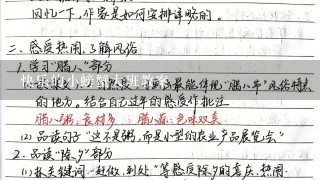 回忆一下，作家是如何安排详略的。
二、感受热闹，了解风俗
1. 学习“腊八”部分
快乐的小螃蟹大班教案
最能体现“腊八节”风俗特点
的地方。结合自己过年的感受作批注
腊八粥：食材多 腊八蒜：色味双美
(2) 品读句子“这不是粥，而是小型的农业产品展览会”
2. 品读“除夕”部分
(1) 抓关键词：赶做、到处 等感受除夕的喜庆、热闹